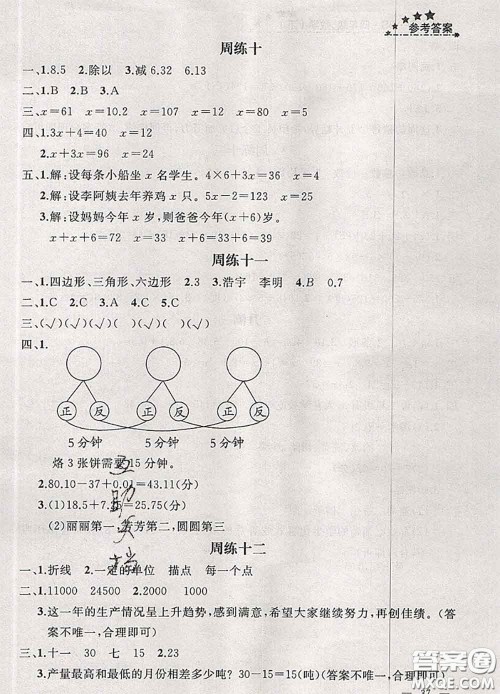 参考答案
周练十
一、1.8.5 2.除以 3.减 6.32 6.13
二、1.B 2.B 3.A
三、x=61 x=10.2 x=107 x=12 x=110 x=13.5
四、1.3x+4=40 x=12
2.3x=70.8 x=23.6
五、1.解:设每条小船坐 x 名学生。4×6+3x=36 x=4
2.解:设李阿姨去年养鸡 x 只。5x-2=123 x=25
3.解:设妈妈今年 x 岁,则爸爸今年(x+6)岁。
x+x+6=72 x=33 x+6=33+6=39
周练十一
一、1.四边形、三角形、六边形 2.3 3.浩宇 李明 4.B 0.7
二、1.C 2.C 3.A 4.C 5.C
三、(√)(√)(√) (√) (√)
四、1.
正 反 正 反 正 反
5分钟 5分钟 5分钟
烙3张饼需要15分钟。
2.80.10-37+0.01=43.11(分)
3.(1)18.5+7.25=25.75(分)
(2)丽丽第一,芳芳第二,圆圆第三
互助
周练十二
一、1.折线 2.一定的单位 描点 每一个点
二、1.11000 24500 2.2000 1000
3.这一年的生产情况呈上升趋势,感到满意,希望大家继续努力,再创佳绩。(答
案不唯一,合理即可)
三、1.十一 30 七 15 2.23
3.产量最高和最低的月份相差多少吨? 30-15=15(吨)(答案不唯一,合理即可)
答案圈
MXQE.COM